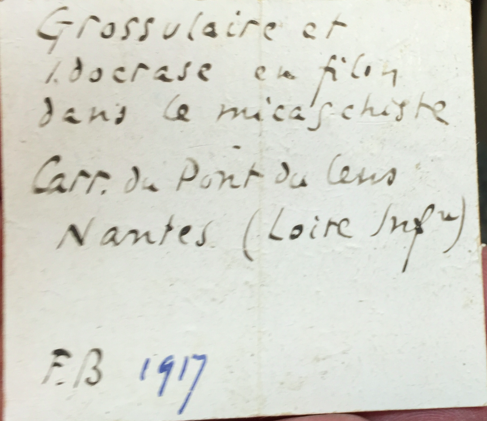 Grossulaire et
idocrase en filon
dans le micaschiste
Carr. du Pont du Cens
Nantes (Loire Infre)
F.B 1917